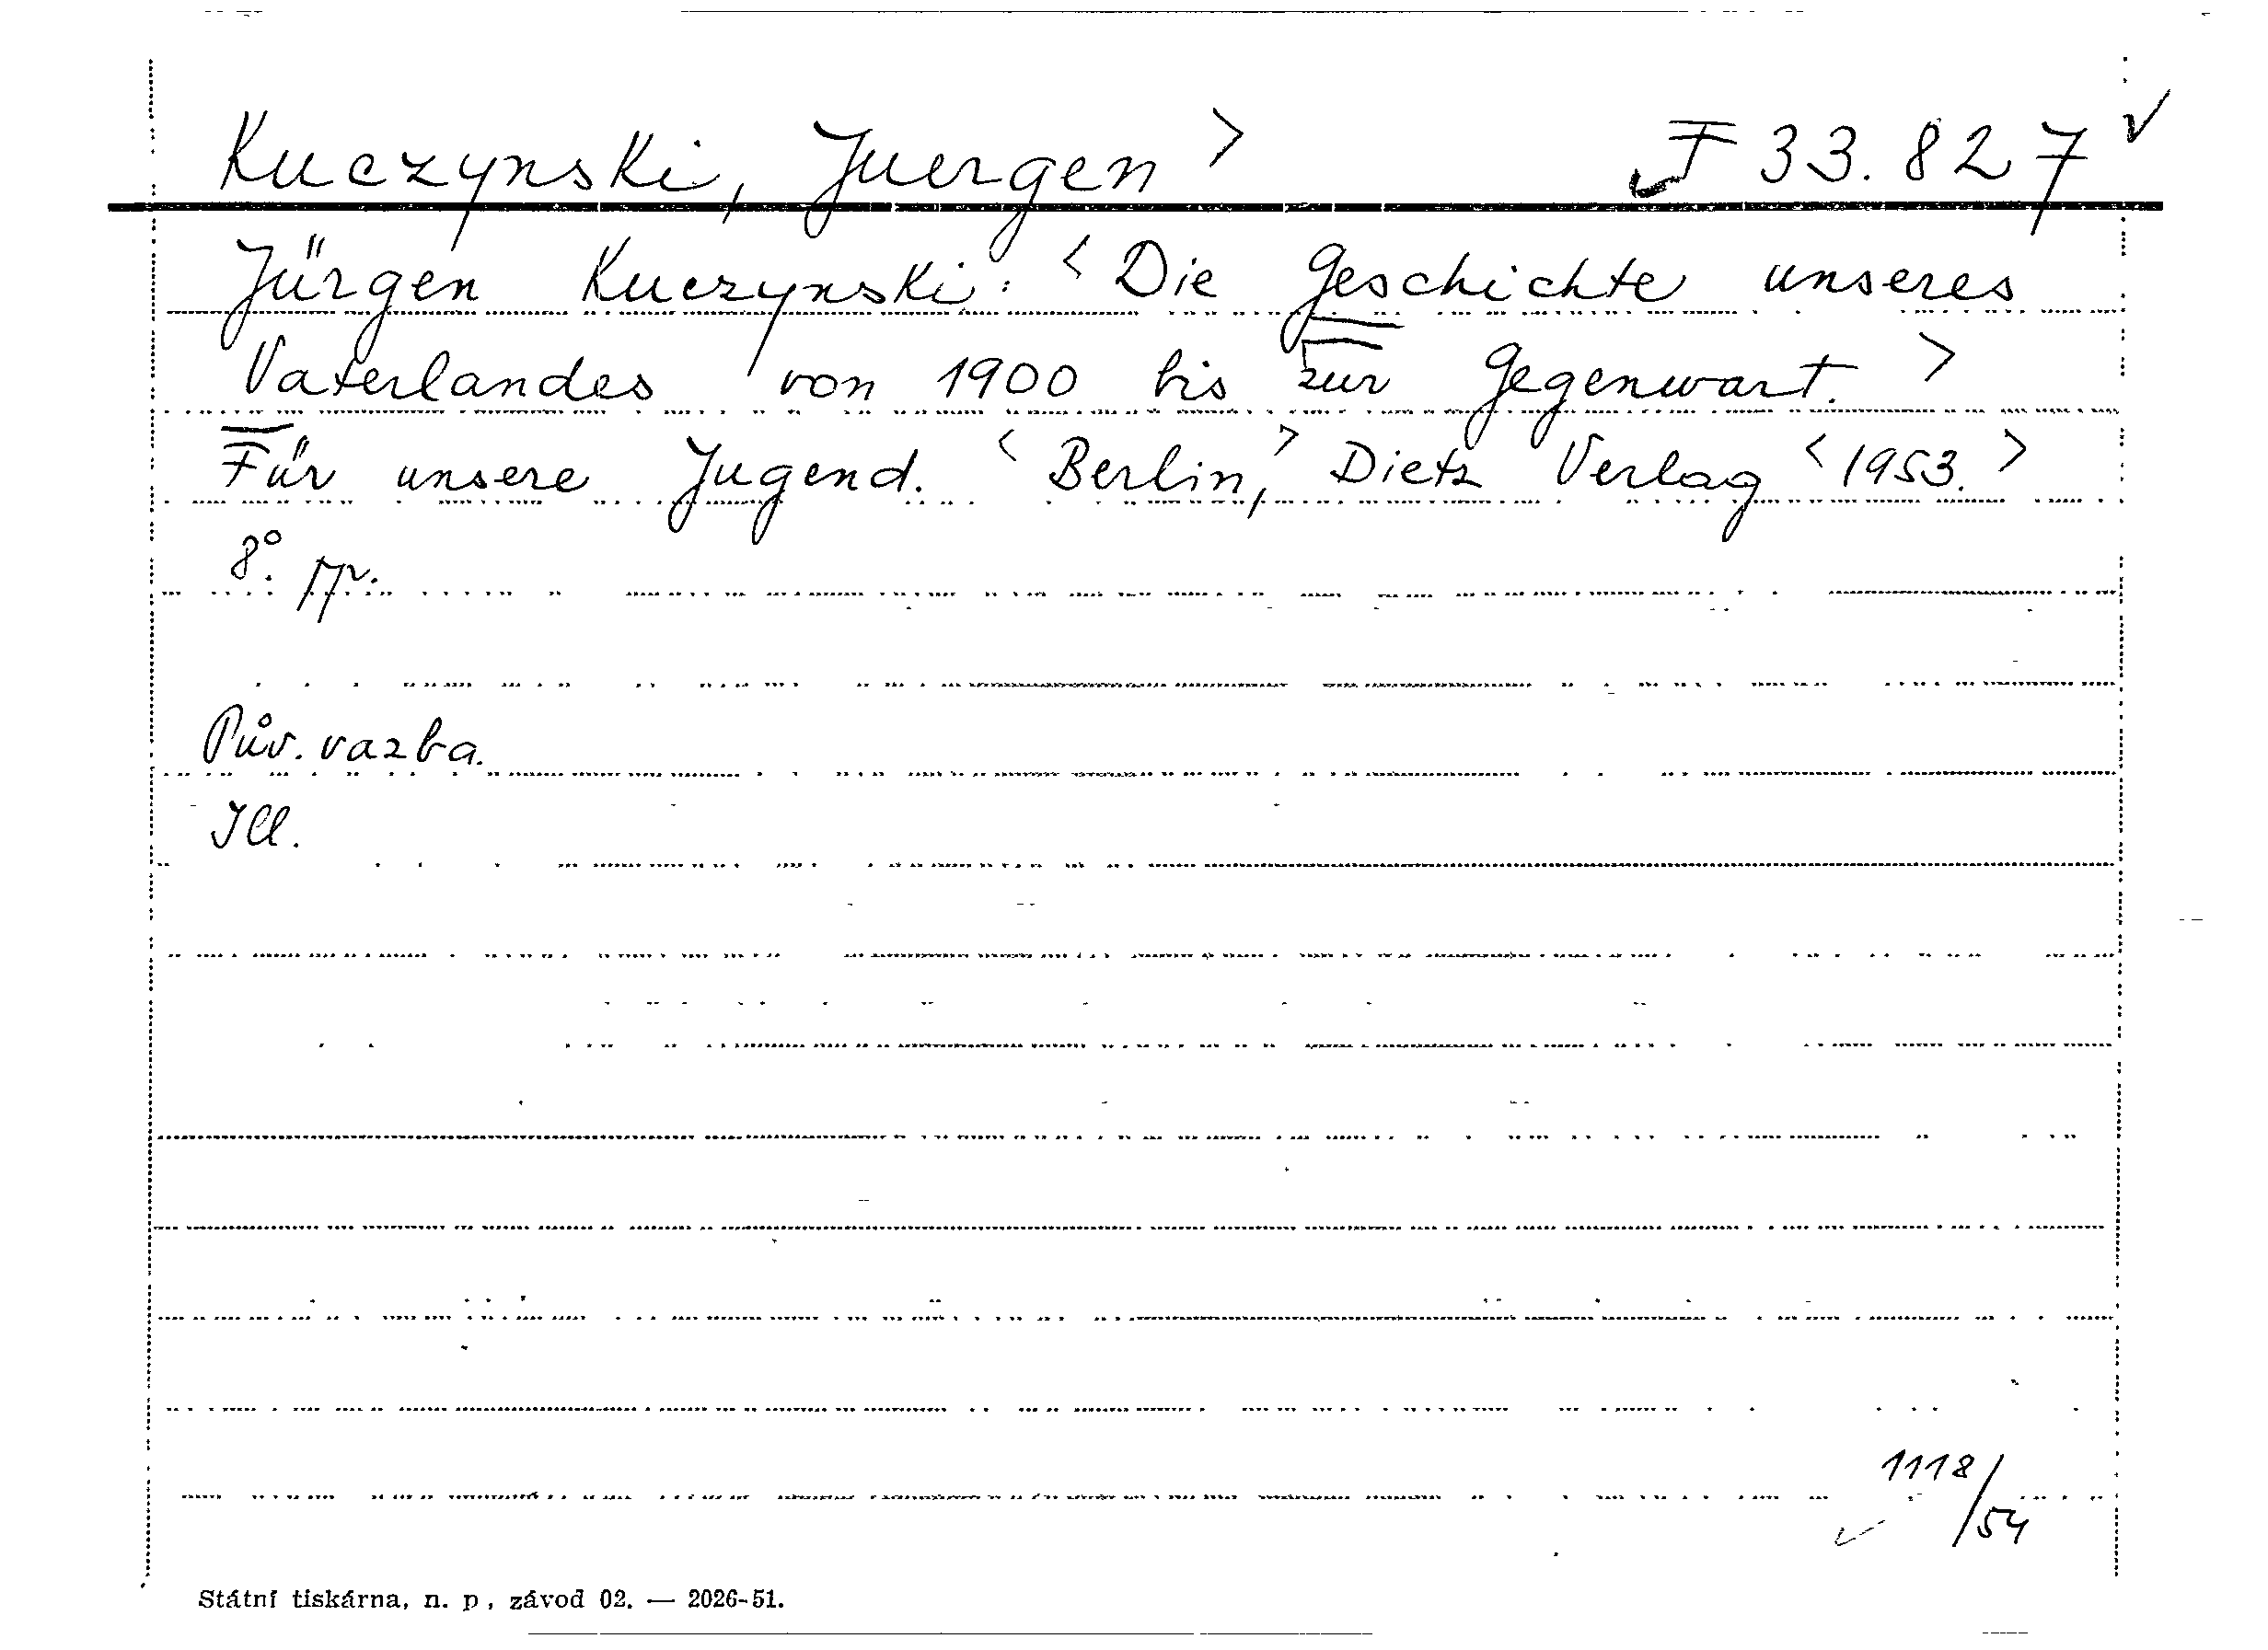 Kuczynski, Juergen > F 33.827
Jürgen Kuczynski: <Die Geschichte unseres
Vaterlandes von 1900 bis zur Gegenwart.>
Für unsere Jugend. <Berlin,> Dietz Verlag <1953.>
8°.
Pův. vazba.
Ill.
1118/54
Státní tiskárna, n. p., závod 02. — 2026-51.